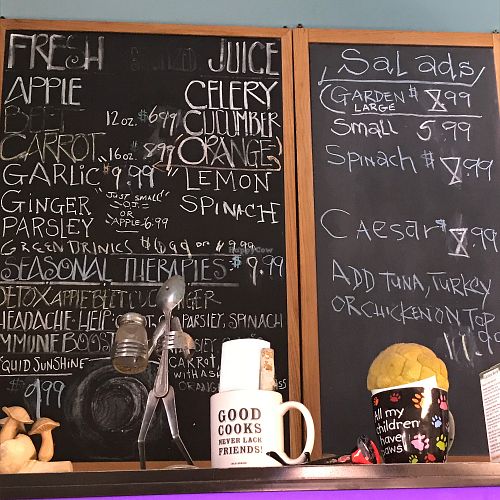 FRESH JUICE
APPLE CELERY
BEET 12oz. $6.99 CUCUMBER
CARROT 16oz. $8.99 ORANGE
GARLIC $9.99 LEMON
GINGER "JUST SMALL" SPINACH
O.J. OR
PARSLEY APPLE 6.99
GREEN DRINKS OR $9.99
SEASONAL THERAPIES - $9.99
DETOX APPLE BEET GINGER
HEADACHE HELP: PARSLEY, SPINACH
IMMUNE BOOST PARSLEY
"LIQUID SUNSHINE" CARROT
WITH A
$9.99 ORANGE
Salads
GARDEN $8.99
LARGE
Small 5.99
Spinach $8.99
Caesar $8.99
ADD TUNA, TURKEY
OR CHICKEN ON TOP
11.99
HappyCow
GOOD
COOKS
NEVER LACK
FRIENDS!
All my
children
have
paws